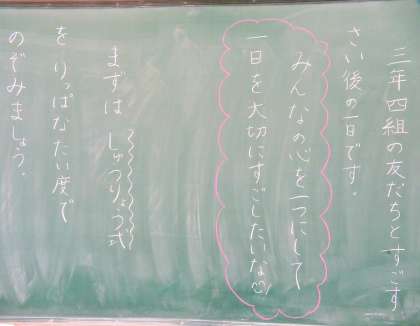 三年四組の友だちとすごす
さい後の一日です。
みんなの心を一つにして
一日を大切にすごしたいな
まずは しゅつりょう式
を りっぱなたい度で
のぞみましょう。